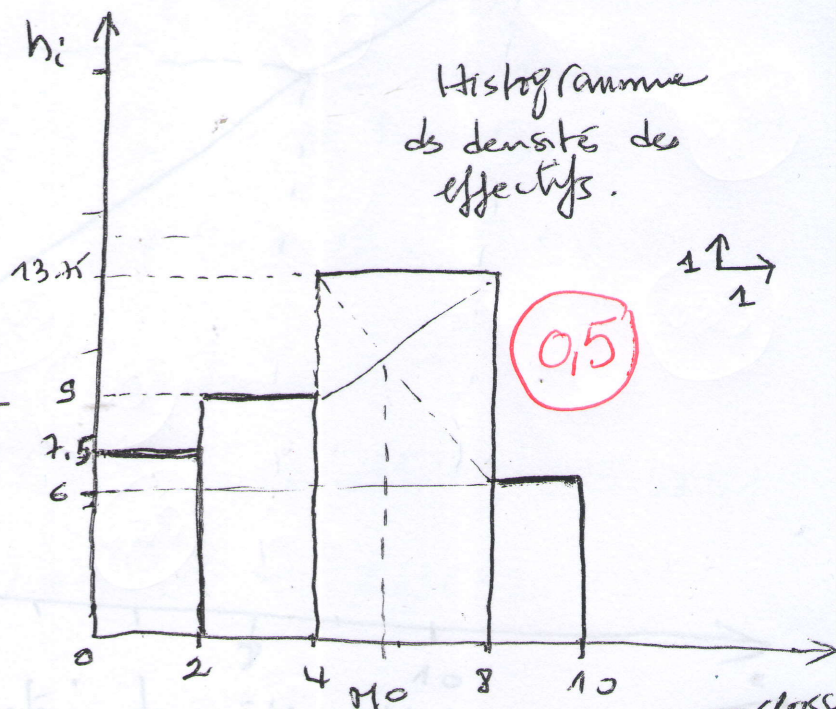 hi
Histogramme
ds densités des
effectifs.
13.75
1
1
0,5
9
7,5
6
0
2
4
M0
8
10
class